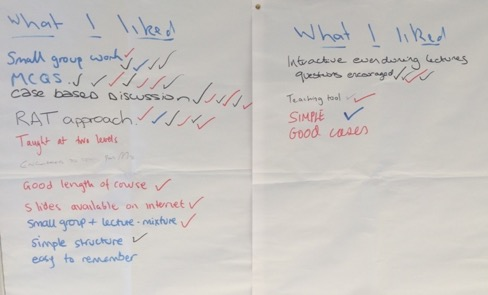 What I liked
Small group work
MCQS
CASE BASED DISCUSSION
RAT approach
Taught at two levels
Good length of course
Slides available on internet
Small group + lecture - mixture
Simple structure
easy to remember
What I liked
Interactive even during lectures
questions encouraged
Teaching tool
SIMPLE
Good cases